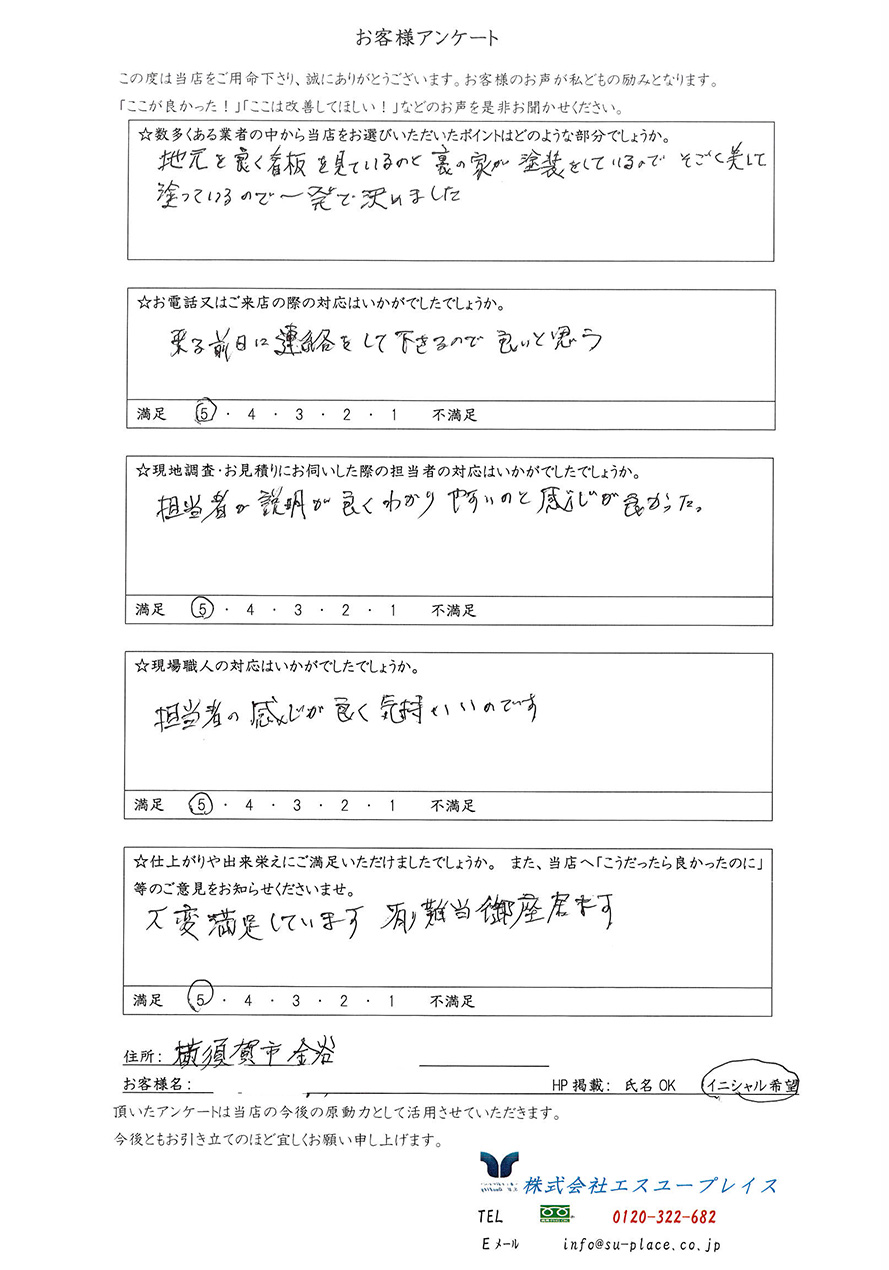 お客様アンケート
この度は当店をご用命下さり、誠にありがとうございます。お客様のお声が私どもの励みとなります。
「ここが良かった！」「ここは改善してほしい！」などのお声を是非お聞かせください。
☆数多くある業者の中から当店をお選びいただいたポイントはどのような部分でしょうか。
地元を良く看板を見ているのと裏の家が塗装をしているので そごく美して
塗っているので一発で決いました
☆お電話又はご来店の際の対応はいかがでしたでしょうか。
来る前日に連絡をして下さるので良いと思う
満足 5・4・3・2・1 不満足
☆現地調査・お見積りにお伺いした際の担当者の対応はいかがでしたでしょうか。
担当者が説明が良くわかりやすいのと感じが良かった。
満足 5・4・3・2・1 不満足
☆現場職人の対応はいかがでしたでしょうか。
担当者の感じが良く気持いいのです
満足 5・4・3・2・1 不満足
☆仕上がりや出来栄えにご満足いただけましたでしょうか。 また、当店へ「こうだったら良かったのに」
等のご意見をお知らせくださいませ。
大変満足しています 有難当御座居ます
満足 5・4・3・2・1 不満足
住所： 横須賀市金谷
お客様名： HP掲載： 氏名OK イニシャル希望
頂いたアンケートは当店の今後の原動力として活用させていただきます。
今後ともお引き立てのほど宜しくお願い申し上げます。
株式会社エスユープレイス
TEL 0120-322-682
Eメール info@su-place.co.jp